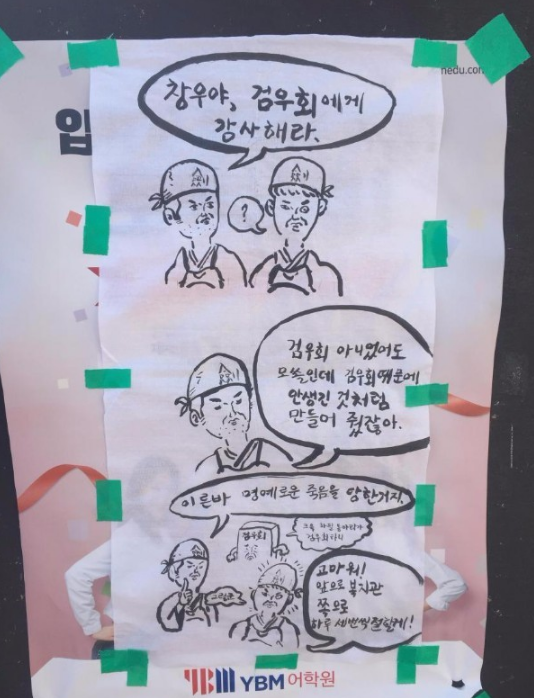 nedu.con
입
창우야, 검우회에게
감사해라.
?
검우회 아니었어도
모쏠인데 검우회때문에
안생긴 것처럼
만들어 줬잖아.
이른바 명예로운 죽음을 당한거지.
검우회
검우회
고마워!
앞으로 복지관
쪽으로
하루 세번씩 절할게!
YBM 어학원